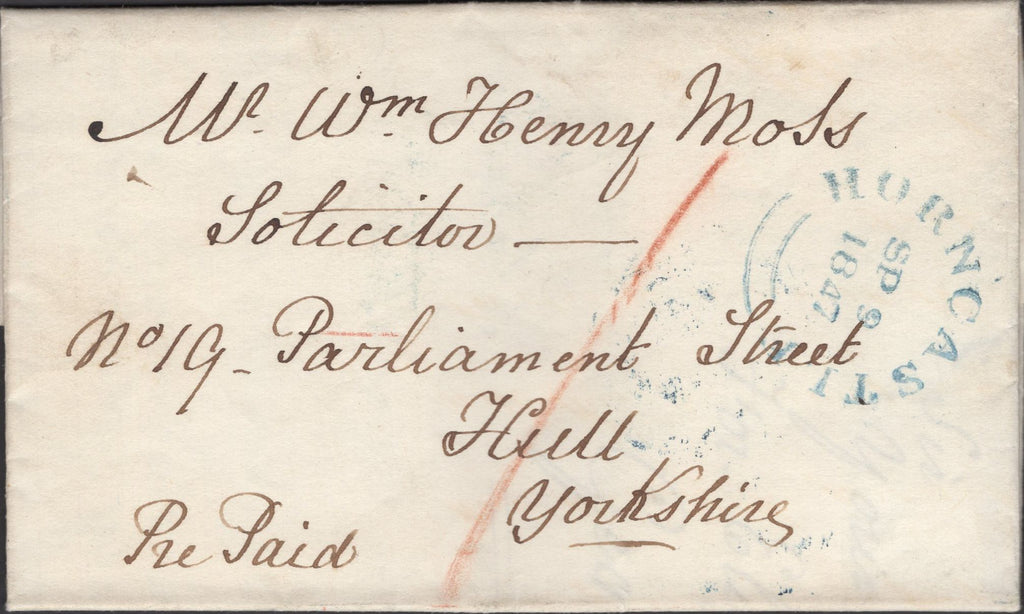 Mr. Wm Henry Moss
Solicitor —
No 19 - Parliament Street
Hull
Yorkshire
Pre Paid
HORNCASTLE
SP 9
1847